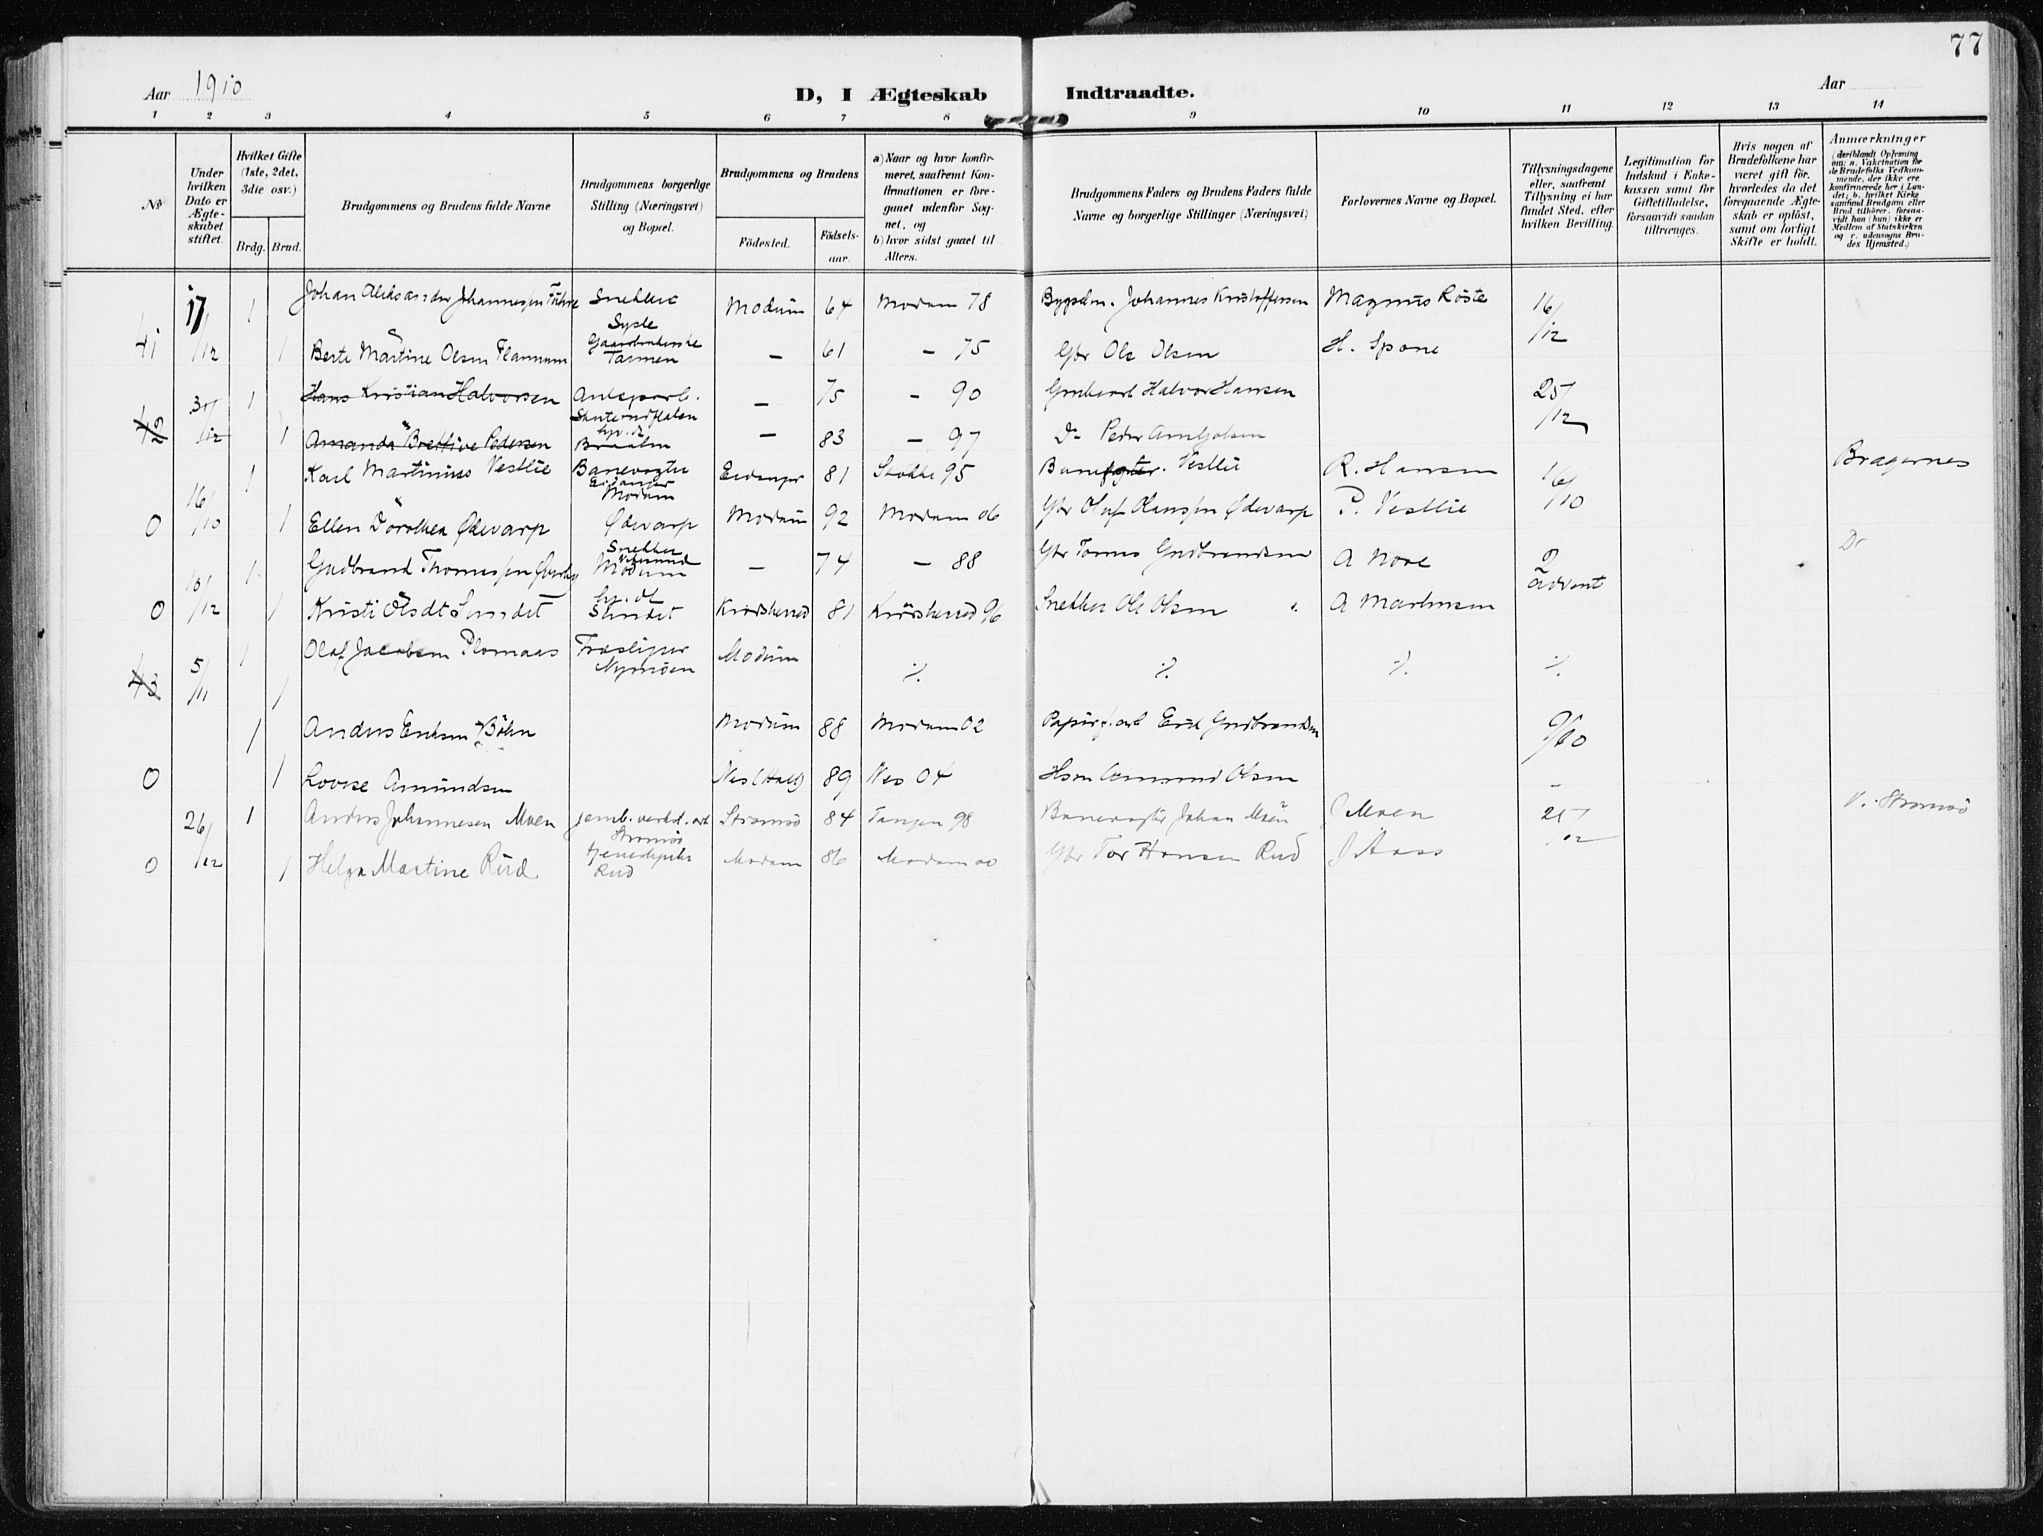 77
Aar 1910
D, I Ægteskab Indtraadte.
Aar
1 2 3 4 5 6 7 8 9 10 11 12 13 14
№
Under hvilken Dato er Ægteskabet stiftet.
Hvilket Gifte (1ste, 2det, 3die osv.)
Brdg. Brud.
Brudgommens og Brudens fulde Navne
Brudgommens borgerlige Stilling (Næringsvei) og Bopæl.
Brudgommens og Brudens
Fødested. Fødselsaar.
a) Naar og hvor konfirmeret, saafremt Konfirmationen er foregaaet udenfor Sognet, og
b) hvor sidst gaaet til Alters.
Brudgommens Faders og Brudens Faders fulde Navne og borgerlige Stillinger (Næringsvei)
Forlovernes Navne og Bopæl.
Tillysningsdagene eller, saafremt Tillysning ei har fundet Sted, efter hvilken Bevilling.
Legitimation for Indskud i Enkekassen samt for Giftetilladelse, forsaavidt saadan tiltrænges.
Hvis nogen af Brudefolkene har været gift før, hvorledes da det foregaaende Ægteskab er opløst, samt om lovligt Skifte er holdt.
Anmærkninger
(deriblandt Oplysning om: a. Vakcination for de Brudefolks Vedkommende, der ikke ere konfirmerede her i Landet; b. hvilket Kirkesamfund Brudgom eller Brud tilhører, forsaavidt han (hun) ikke er Medlem af Statskirken og c. udensogns Brudes Hjemsted.)
17 1 Johan Aleksander Johannessen Snekker Modum 64 Modum 78 Bygselm. Johannes Kristoffersen Magnus Röste 16/12
41 /12 1 Berte Martine Olsen Flannum Tannen — 61 — 75 Gbr Ole Olsen H. Spone
31/12 1 Hans Kristian Halvorsen — 75 — 90 Halvor Hansen 25/12
42 1 Amanda Pedersen — 83 — 97 Do Peder
1 Karl Martinius Vestlie Banevogter Eidanger Eidanger 81 Stokke 95 Vestlie R. Hansen 16/10 Bragernes
0 16/10 1 Ellen Dorothea Ødevarp Modum Ødevarp Modum 92 Modum 06 Gbr Olaf Hanssen Ødevarp P. Vestlie
1 Gudbrand Thomassen Snekker Modum — 74 — 88 Gbr Tomas Gudbrandsen A Nore 2 advent Do
0 10/12 1 Kristi Olsdt Sundet Sundet Krödsherred 81 Krödsherred 96 Snekker Ole Olsen A Martinsen
43 5/11 1 Olaf Jacobsen Plomaas Træsliper Nymoen Modum ./. ./. ./. ./.
1
1 Anders Eriksen Böhn Modum 88 Modum 02 Papirf. arb Erik Gudbrandsen 9/10
0 1 Lovise Amundsen Nes (Hall) 89 Nes 04 Hsm Amund Olsen —
26/12 1 Anders Johannesen Moen jernb. verkst. arb Strömsö Strömsö 84 Tangen 98 Banevogter Johan Moen J Moen 25/12 V. Strömsö
0 1 Helga Martine Rud tjenestepike Rud Modum 86 Modum 00 Gbr Tor Hansen Rud J Aass